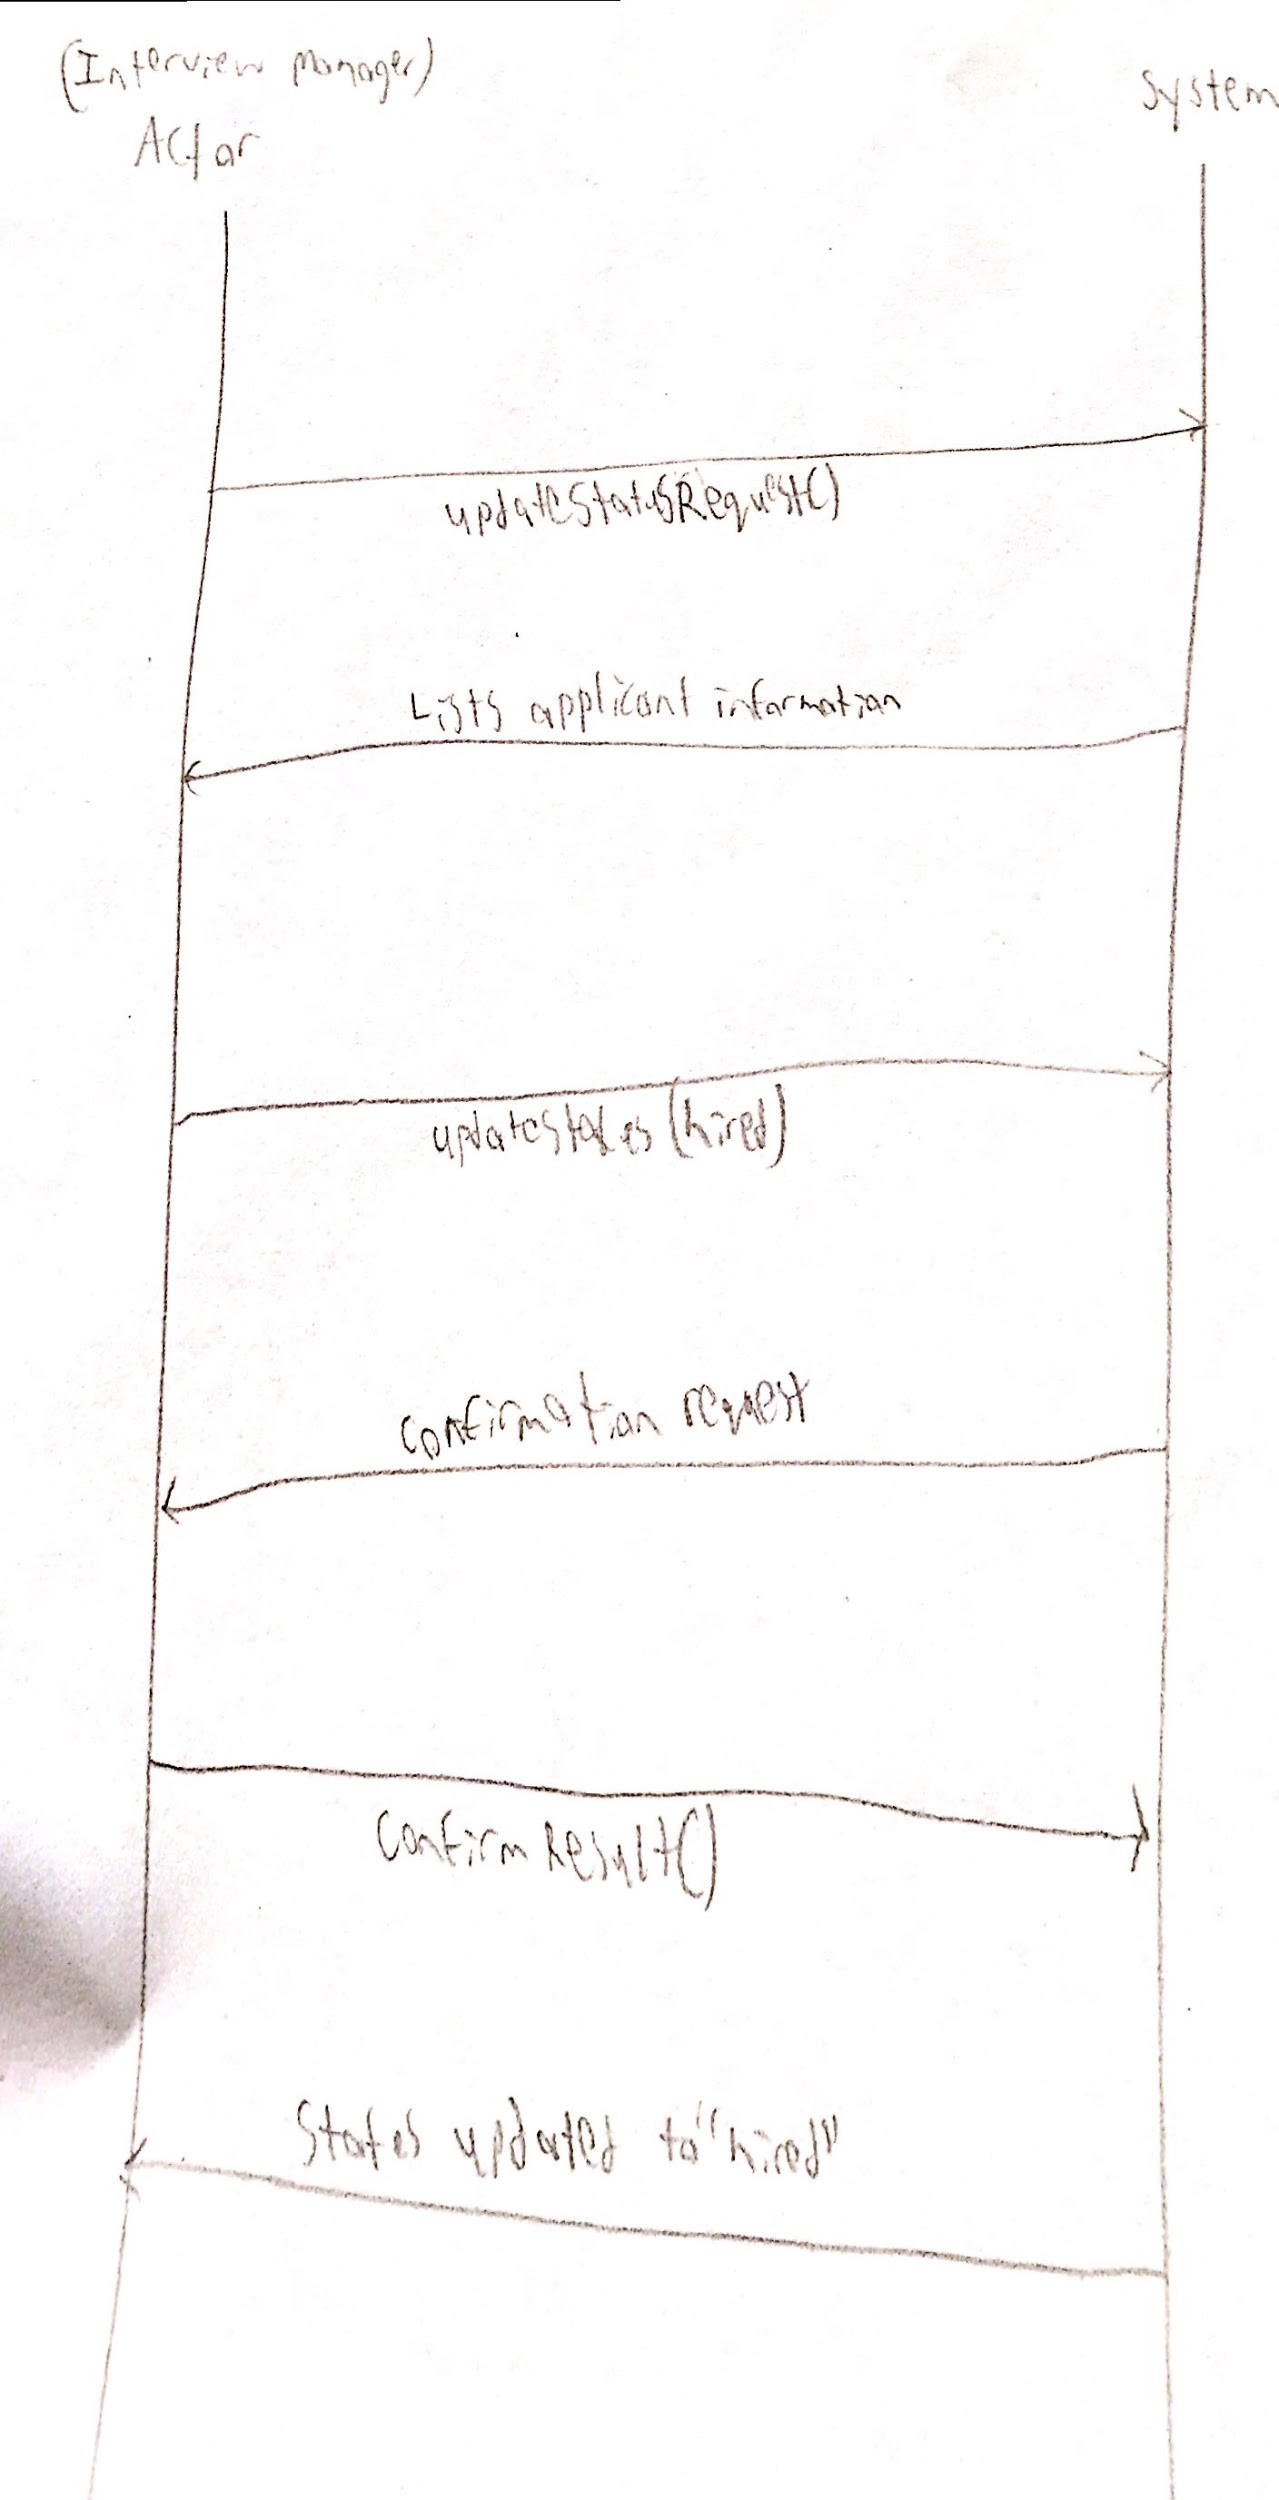 (Interview Manager)
Actor
System
updateStatusRequest()
Lists applicant information
updateStates(hired)
confirmation request
confirmResult()
States updated to "hired"